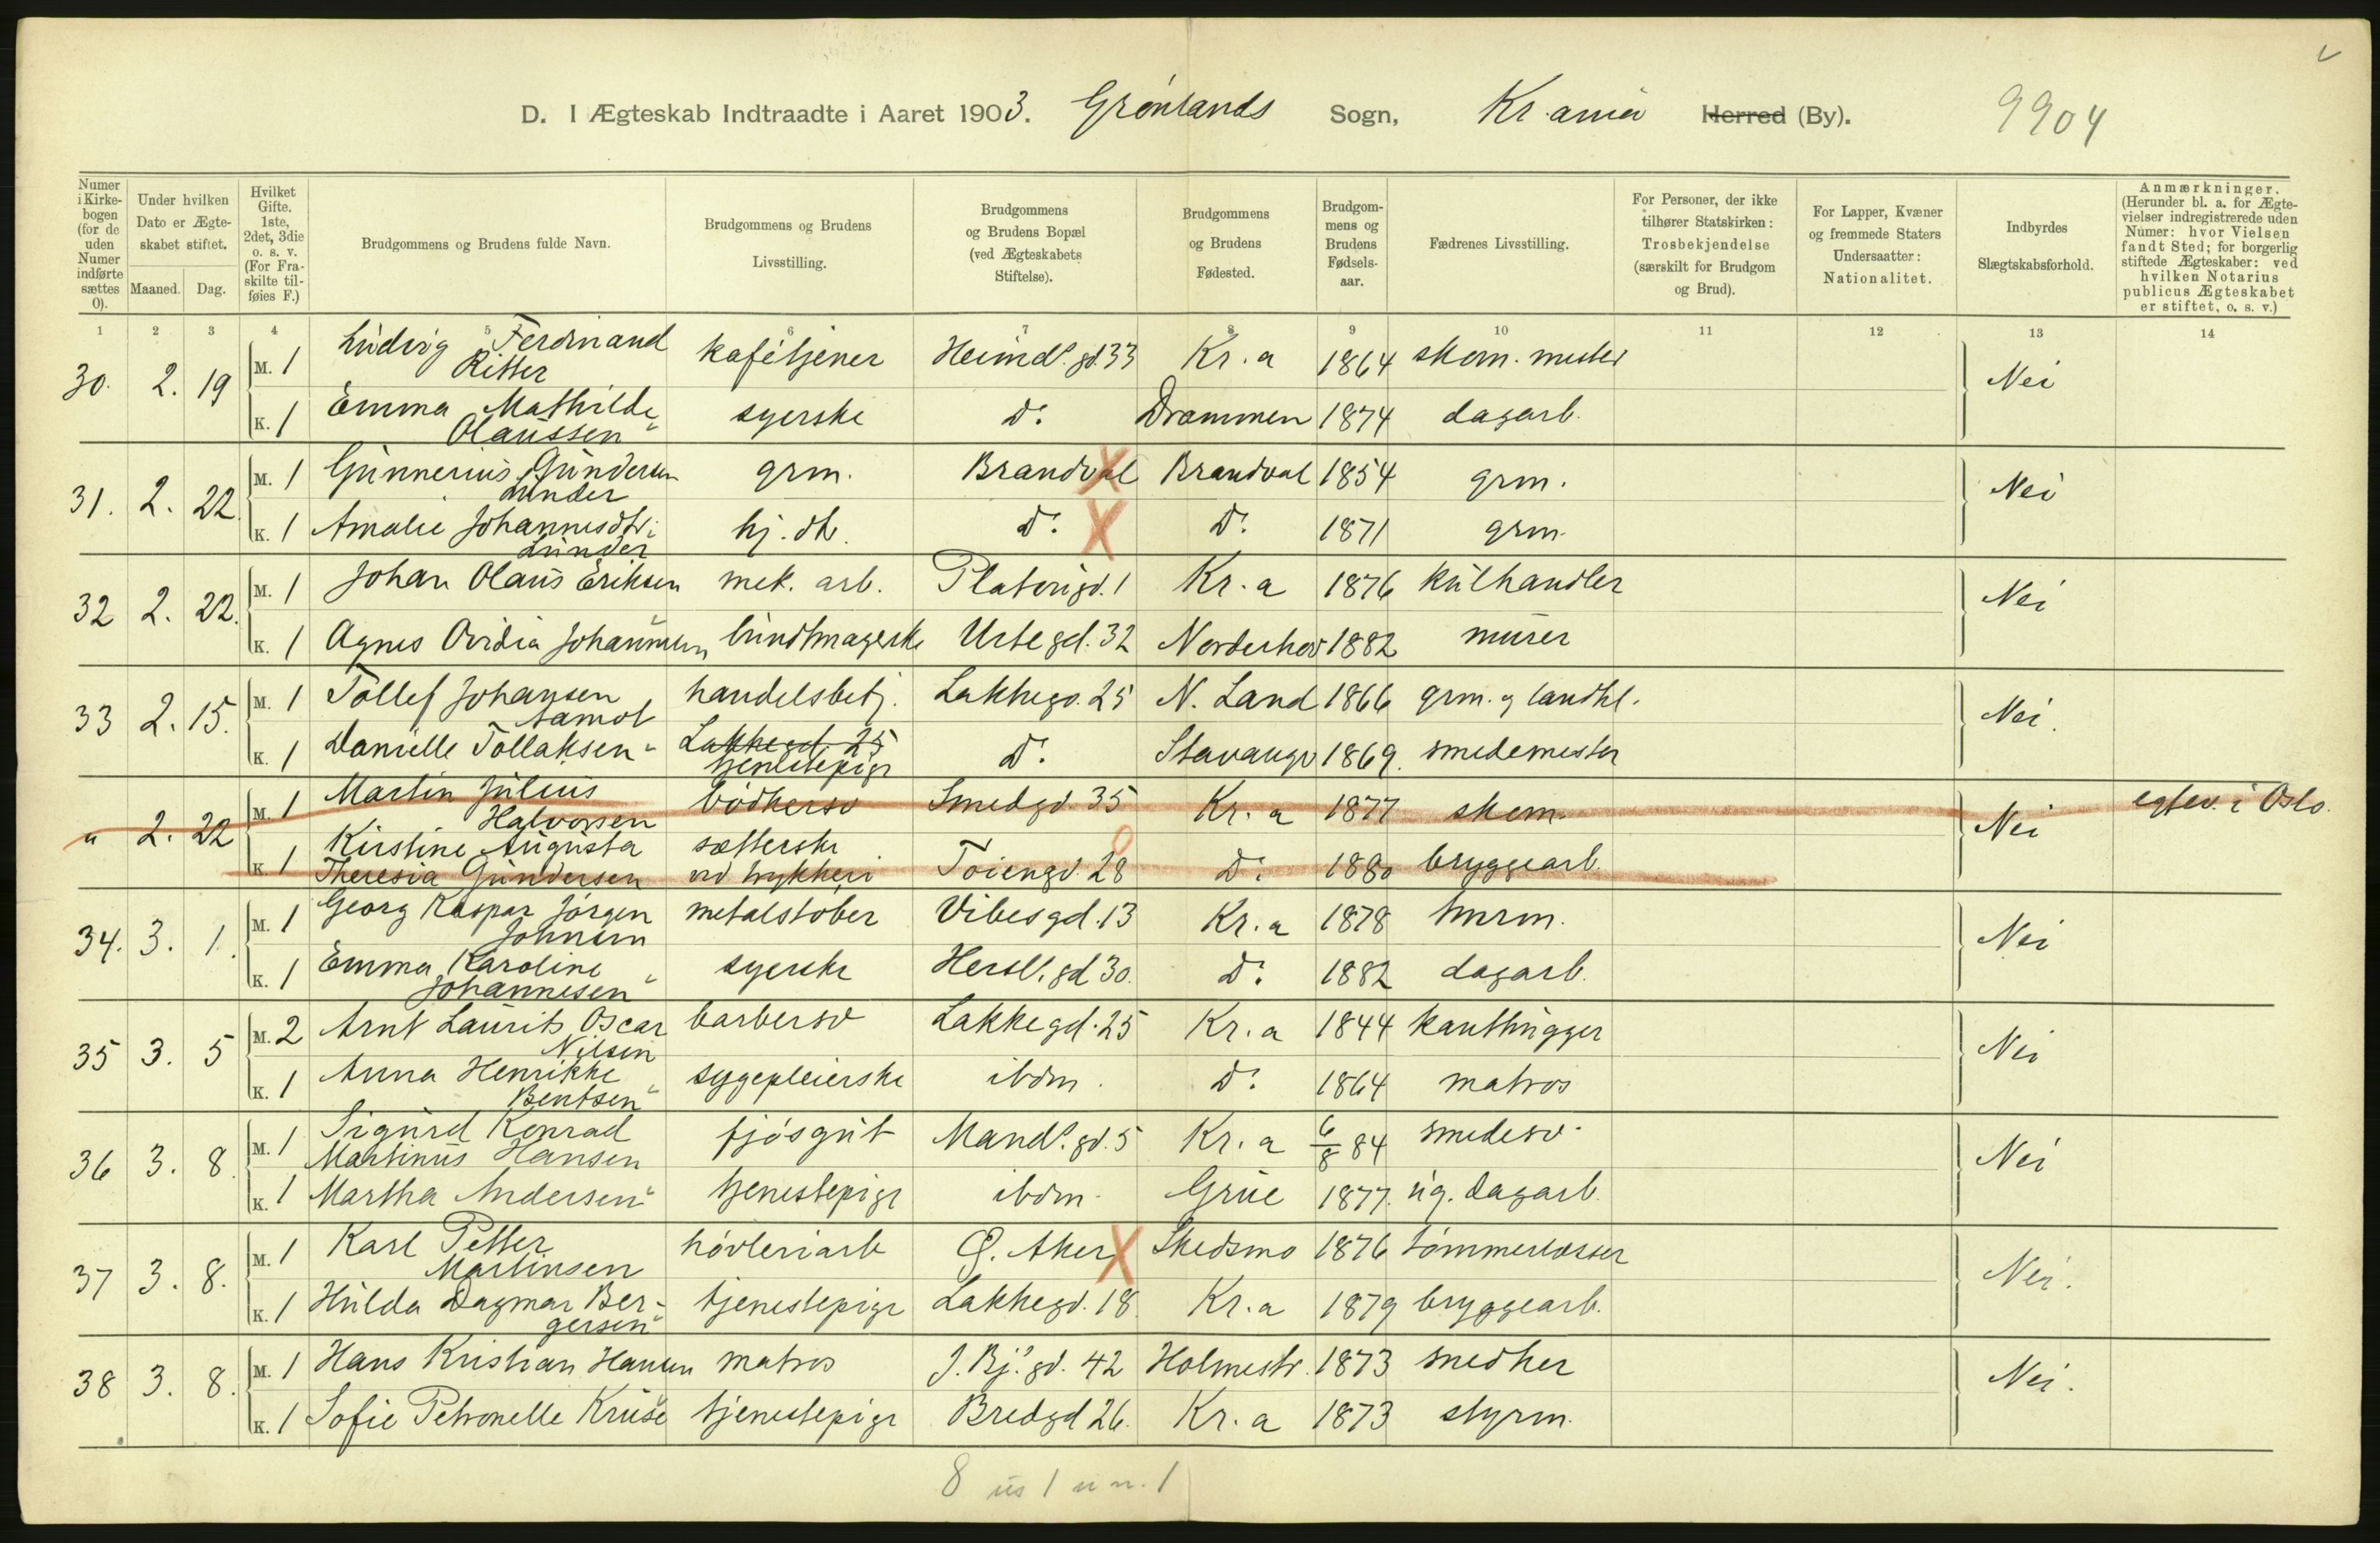 D. I Ægteskab Indtraadte i Aaret 1903. Grønlands Sogn, Kr.ania Herred (By). 9904
Numer i Kirkebogen (for de uden Numer indførte sættes 0).
Under hvilken Dato er Ægteskabet stiftet.
Maaned. Dag.
Hvilket Gifte. 1ste, 2det, 3die o. s. v. (For Fraskilte tilføies F.)
Brudgommens og Brudens fulde Navn.
Brudgommens og Brudens Livsstilling.
Brudgommens og Brudens Bopæl (ved Ægteskabets Stiftelse).
Brudgommens og Brudens Fødested.
Brudgommens og Brudens Fødselsaar.
Fædrenes Livsstilling.
For Personer, der ikke tilhører Statskirken: Trosbekjendelse (særskilt for Brudgom og Brud).
For Lapper, Kvæner og fremmede Staters Undersaatter: Nationalitet.
Indbyrdes Slægtskabsforhold.
Anmærkninger. (Herunder bl. a. for Ægtevielser indregistrerede uden Numer: hvor Vielsen fandt Sted; for borgerlig stiftede Ægteskaber: ved hvilken Notarius publicus Ægteskabet er stiftet, o. s. v.)
1 2 3 4 5 6 7 8 9 10 11 12 13 14
30. 2. 19 M. 1 Ludvig Ferdinand Ritter kafétjener Heimdl. gd. 33 Kr.a 1864 skom. mester Nei
K. 1 Emma Mathilde Olaussen syerske D: Drammen 1874 dagarb.
31. 2. 22. M. 1 Gunnerius Gundersen Lunder grm. Brandval Brandval 1854 grm. Nei
K. 1 Amalie Johannesdtr. Lunder hj. dtr. D: D: 1871 grm.
32 2. 22. M. 1 Johan Olaus Eriksen mek. arb. Platougd. 1 Kr.a 1876 kulhandler Nei
K. 1 Agnes Ovidia Johannesen bundtmagerske Urtegd. 32 Norderhov 1882 murer
33 2. 15. M. 1 Tollef Johansen Aamot handelsbetj. Lakkegd. 25 N. Land 1866 grm. og landhl. Nei.
K. 1 Danielle Tollaksen Lakkegd. 25 tjenestepige D: Stavanger 1869. smedemester
" 2. 22 M. 1 Martin Julius Halvorsen bødkersv Smedgd. 35 Kr.a 1877 skom. Nei egtev. i Oslo.
K. 1 Kirstine Augusta Theresia Gundersen sætterske ved trykkeri Tøiengd. 28 D: 1880 bryggearb.
34. 3. 1. M. 1 Georg Kaspar Jørgen Johnsen metalstøber Vibesgd. 13 Kr.a 1878 tmrm. Nei
K. 1 Emma Karoline Johannesen syerske Hersl. gd 30. D: 1882 dagarb.
35 3. 5 M. 2 Arnt Laurits Oscar Nilsen barbersv Lakkegd. 25 Kr.a 1844 kanthugger Nei
K. 1 Anna Henrikke Bentsen sygepleierske ibdm. D: 1864 matros
36 3. 8. M. 1 Sigurd Konrad Martinus Hansen fjøsgut Mandl. gd. 5 Kr.a 6/8 84 smedesv. Nei
K. 1 Martha Andersen tjenestepige ibdm. Grue 1877. ug. dagarb.
37 3. 8. M. 1 Karl Petter Martinsen høvleriarb Ø. Aker Skedsmo 1876 tømmerlosser Nei.
K. 1 Hulda Dagmar Bergersen tjenestepige Lakkegd. 18. Kr.a 1879 bryggearb.
38 3. 8. M. 1 Hans Kristian Hansen matros J. Bj. gd. 42 Holmestr. 1873 snedker Nei.
K. 1 Sofie Petronelle Kruse tjenestepige Bredgd 26. Kr.a 1873 styrm.